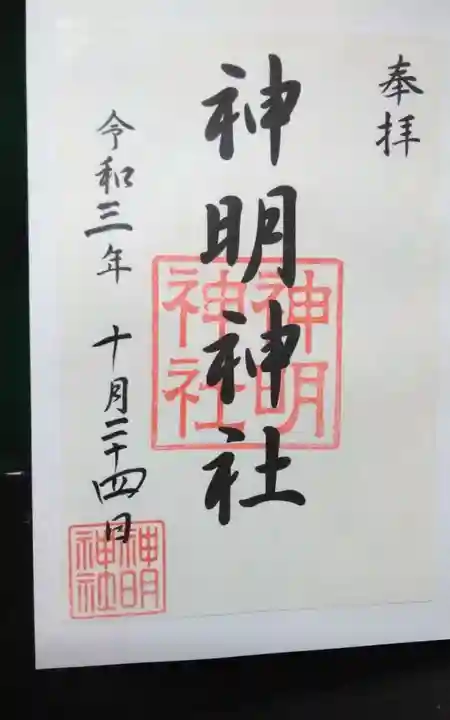 奉拝
神明神社
神明
神社
令和三年 十月二十四日
神明
神社